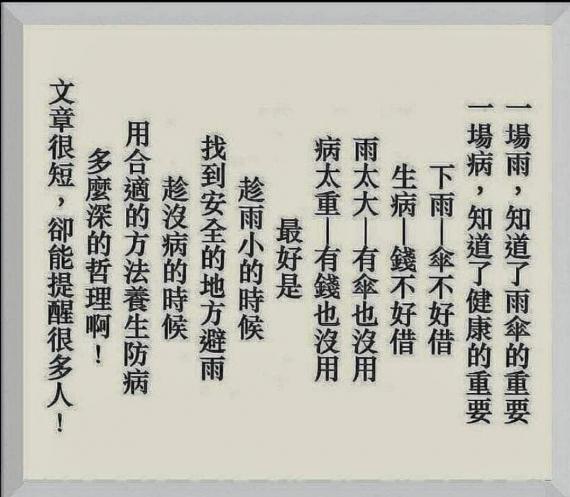 一場雨，知道了雨傘的重要
一場病，知道了健康的重要
下雨—傘不好借
生病—錢不好借
雨太大—有傘也沒用
病太重—有錢也沒用
最好是
趁雨小的時候
找到安全的地方避雨
趁沒病的時候
用合適的方法養生防病
多麼深的哲理啊！
文章很短，卻能提醒很多人！